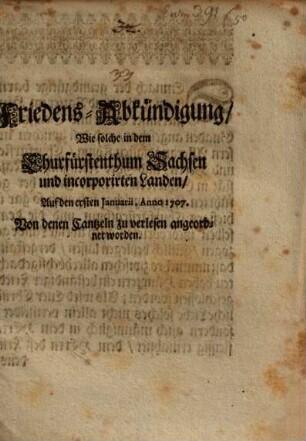 33
Friedens-Abkündigung/
Wie solche in dem
Churfürstenthum Sachsen
und incorporirten Landen/
Auf den ersten Januarii, Anno 1707.
Von denen Cantzeln zu verlesen angeord-
net worden.